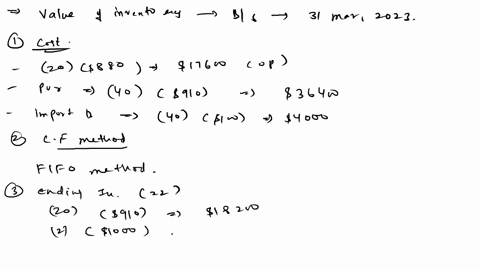 ⇒ Value of inventory → B/s → 31 mar, 2023.
① Cost.
- (20) ($880) → $17600 (OP)
- Pur → (40) ($910) ⇒ $36400
- Import D → (40) ($100) ⇒ $4000
② C.F method
FIFO method.
③ ending In. (22)
(20) ($910) ⇒ $18200
(2) ($1000) .